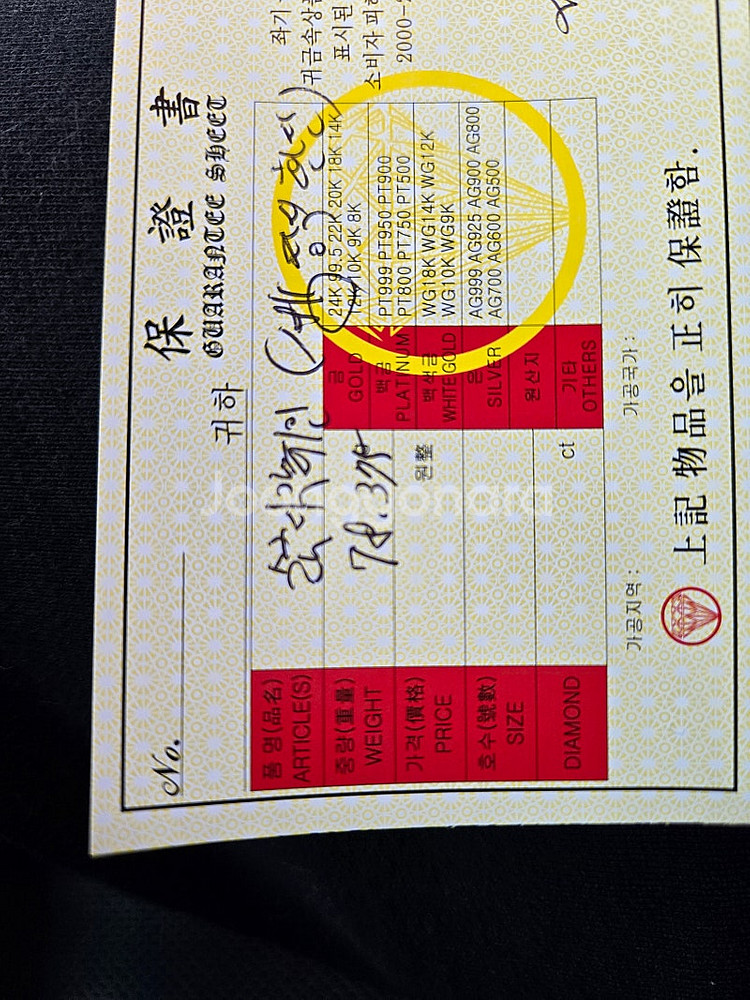 保 證 書
GUARANTEE SHEET
No.
귀하
품 명(品名)
ARTICLE(S)
중량(重量)
WEIGHT
78.37g
가격(價格)
PRICE
원整
호수(號數)
SIZE
DIAMOND
ct
금
GOLD
24K 99.5 22K 20K 18K 14K
12K 10K 9K 8K
백금
PLATINUM
PT999 PT950 PT900
PT800 PT750 PT500
백색금
WHITE GOLD
WG18K WG14K WG12K
WG10K WG9K
은
SILVER
AG999 AG925 AG900 AG800
AG700 AG600 AG500
원산지
기타
OTHERS
가공지역 :
가공국가 :
上記 物品을 正히 保證함.
좌기
귀금속상품
표시된
소비자 피해
2000-